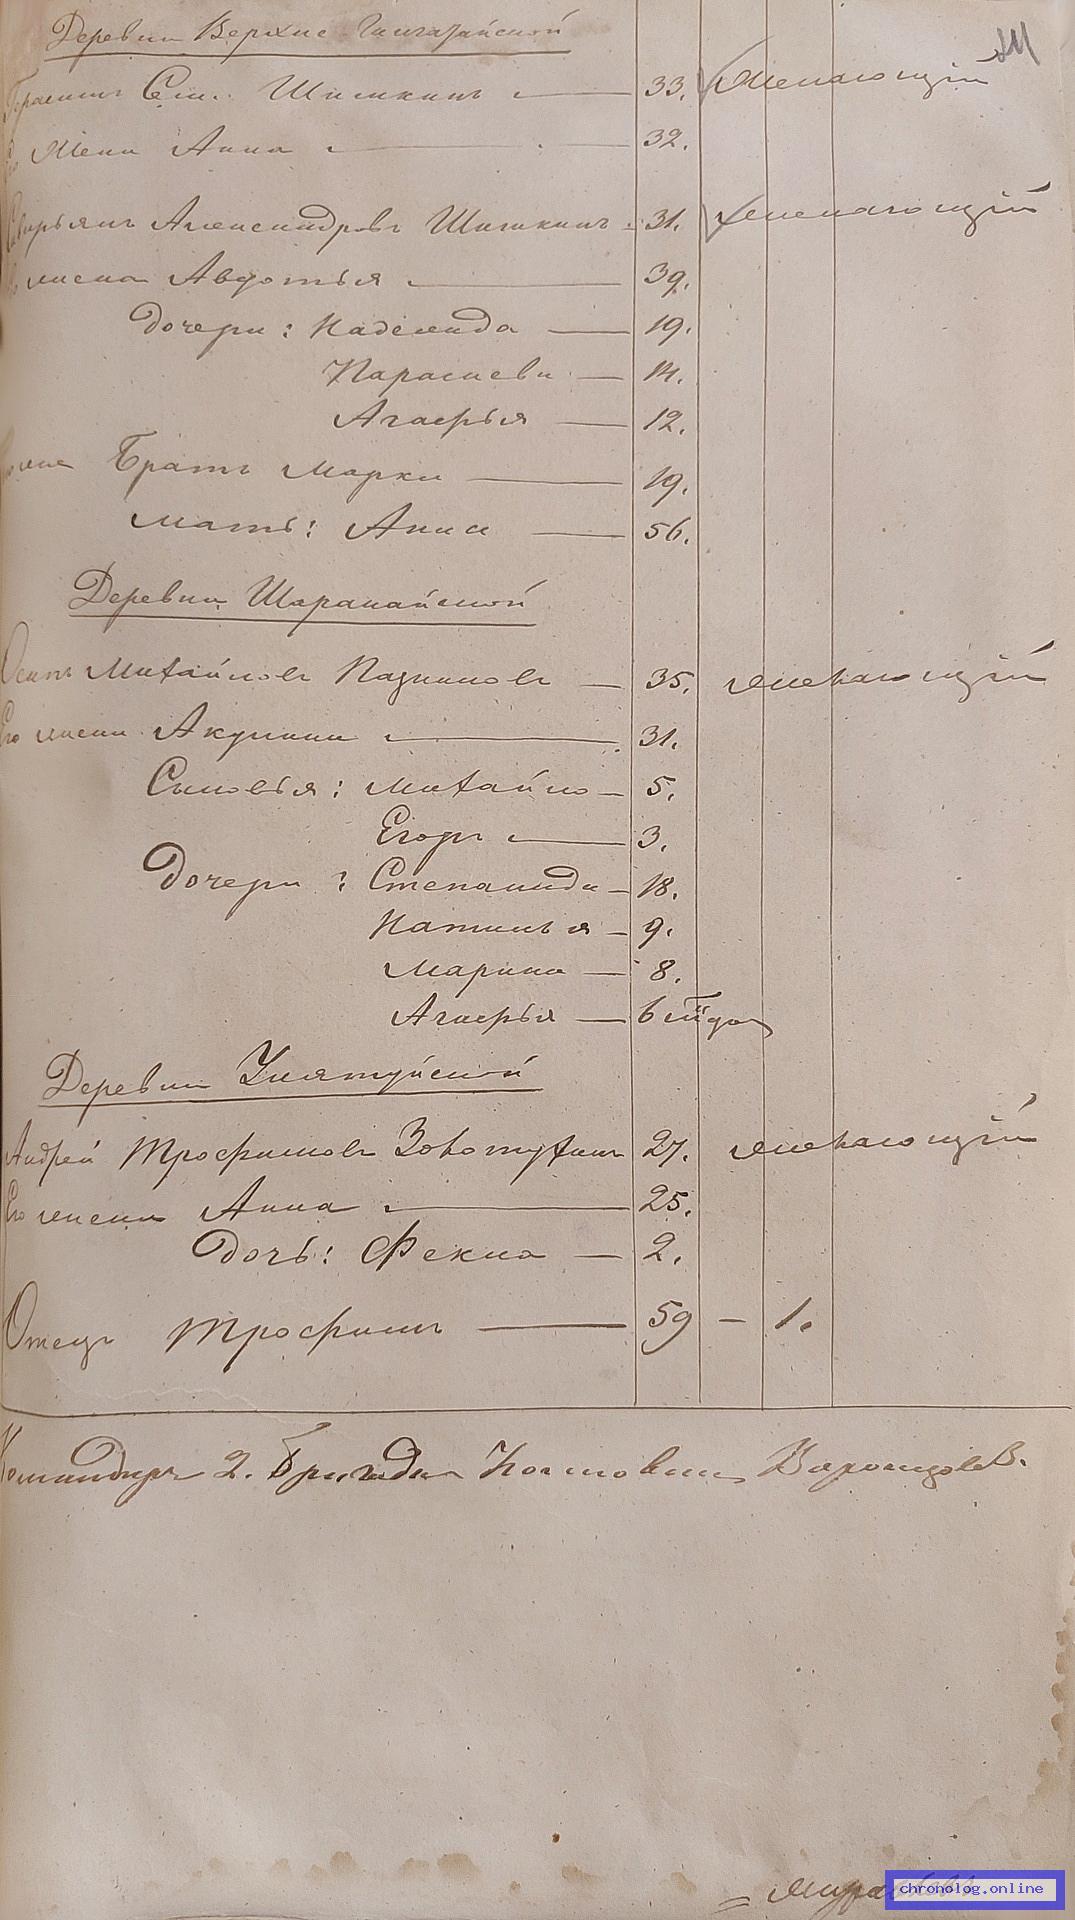 Деревни Верхне
Герасимъ Сем. Шишкинъ 33. желающій
Его Жена Анна 32.
Александровъ Шишкинъ 31. желающій
жена Авдотья 39.
Дочери: Надежда 19.
Парасковья 14.
Агафья 12.
Братъ Марко 19.
мать: Анна 56.
Деревни Шаракайской
Осипъ Михайловъ 35. желающій
Его жена Акулина 31.
Сыновья: Михайло 5.
Егоръ 3.
Дочери: Степанида 18.
Наталья 9.
Марина 8.
Агафья
Деревни Улятуйской
Андрей Трофимовъ Золотухинъ 27. желающій
Его жена Анна 25.
Дочь: Фекла 2.
Отецъ Трофимъ 59 1.
Командиръ 2. Бригады
chronolog.online